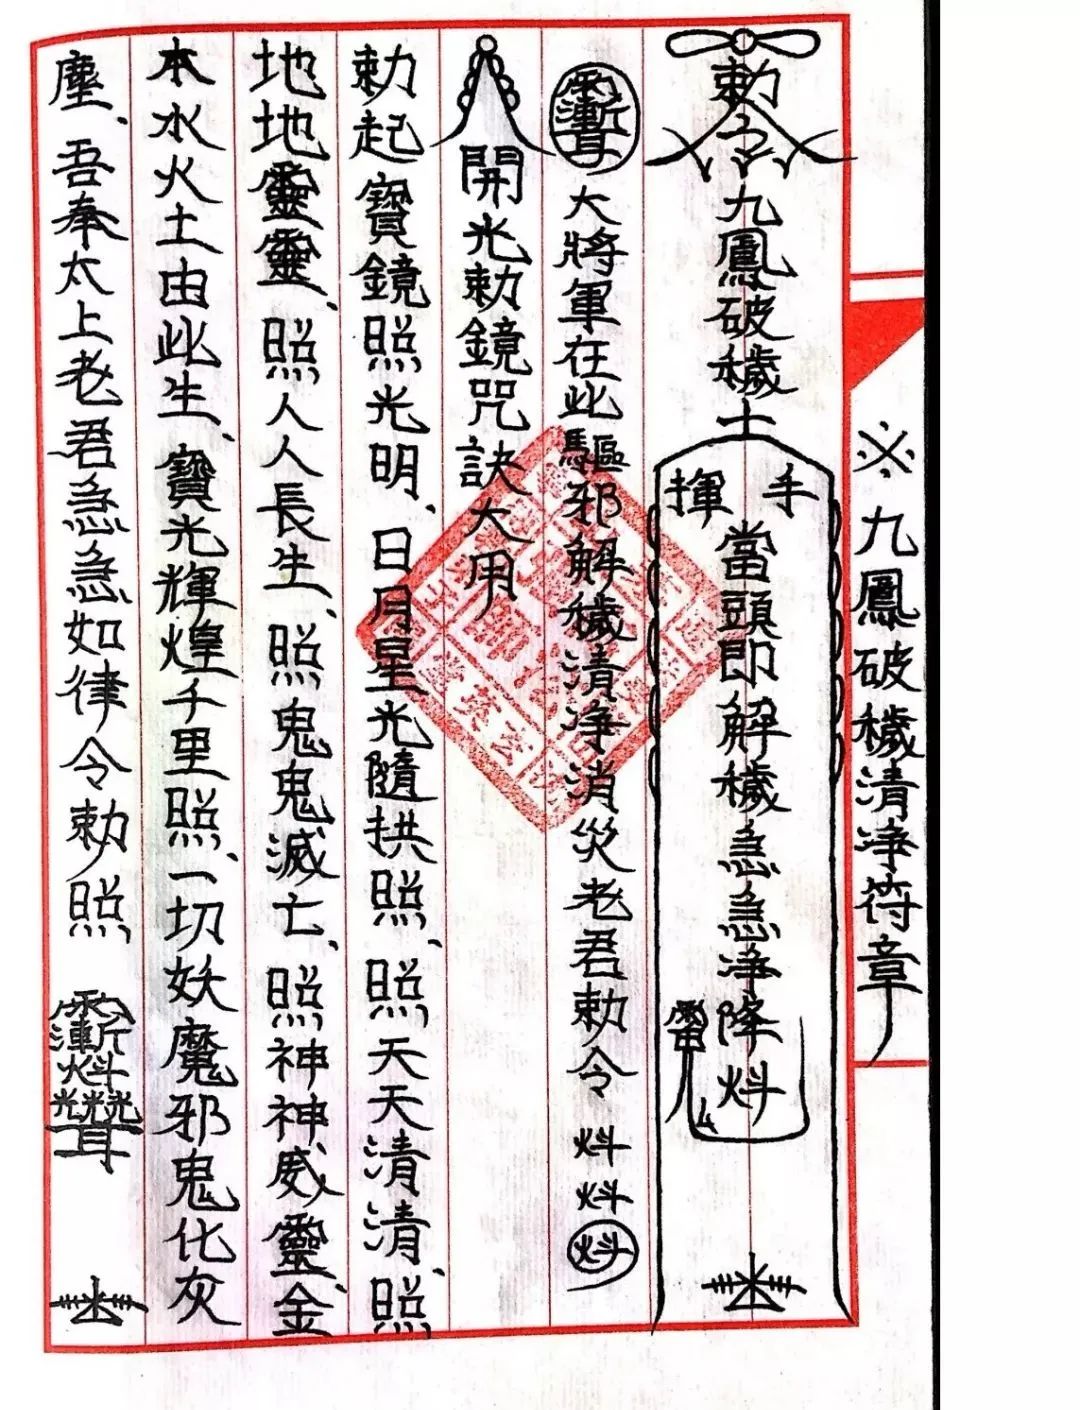 ※九鳳破穢清净符章
勅令九鳳破穢土
手揮
當頭即解穢急急净降炓
大將軍在此驅邪解穢清净消災老君勅令炓炓炓
開光勅鏡咒訣大用
勅起寶鏡照光明、日月星光隨拱照、照天天清清、照
地地靈靈、照人人長生、照鬼鬼滅亡、照神神威靈、金
本水火土由此生、寶光輝煌千里照、一切妖魔邪鬼化灰
塵、吾奉太上老君急急如律令勅照